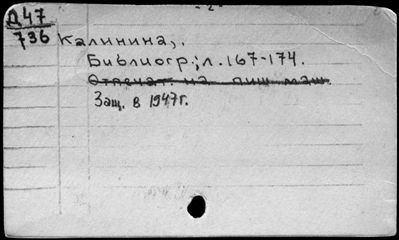 - 2 -
Д47
736 Калинина,.
Библиогр.; л. 167-174.
Отпечат. на пиш. маш.
Защ. в 1947г.